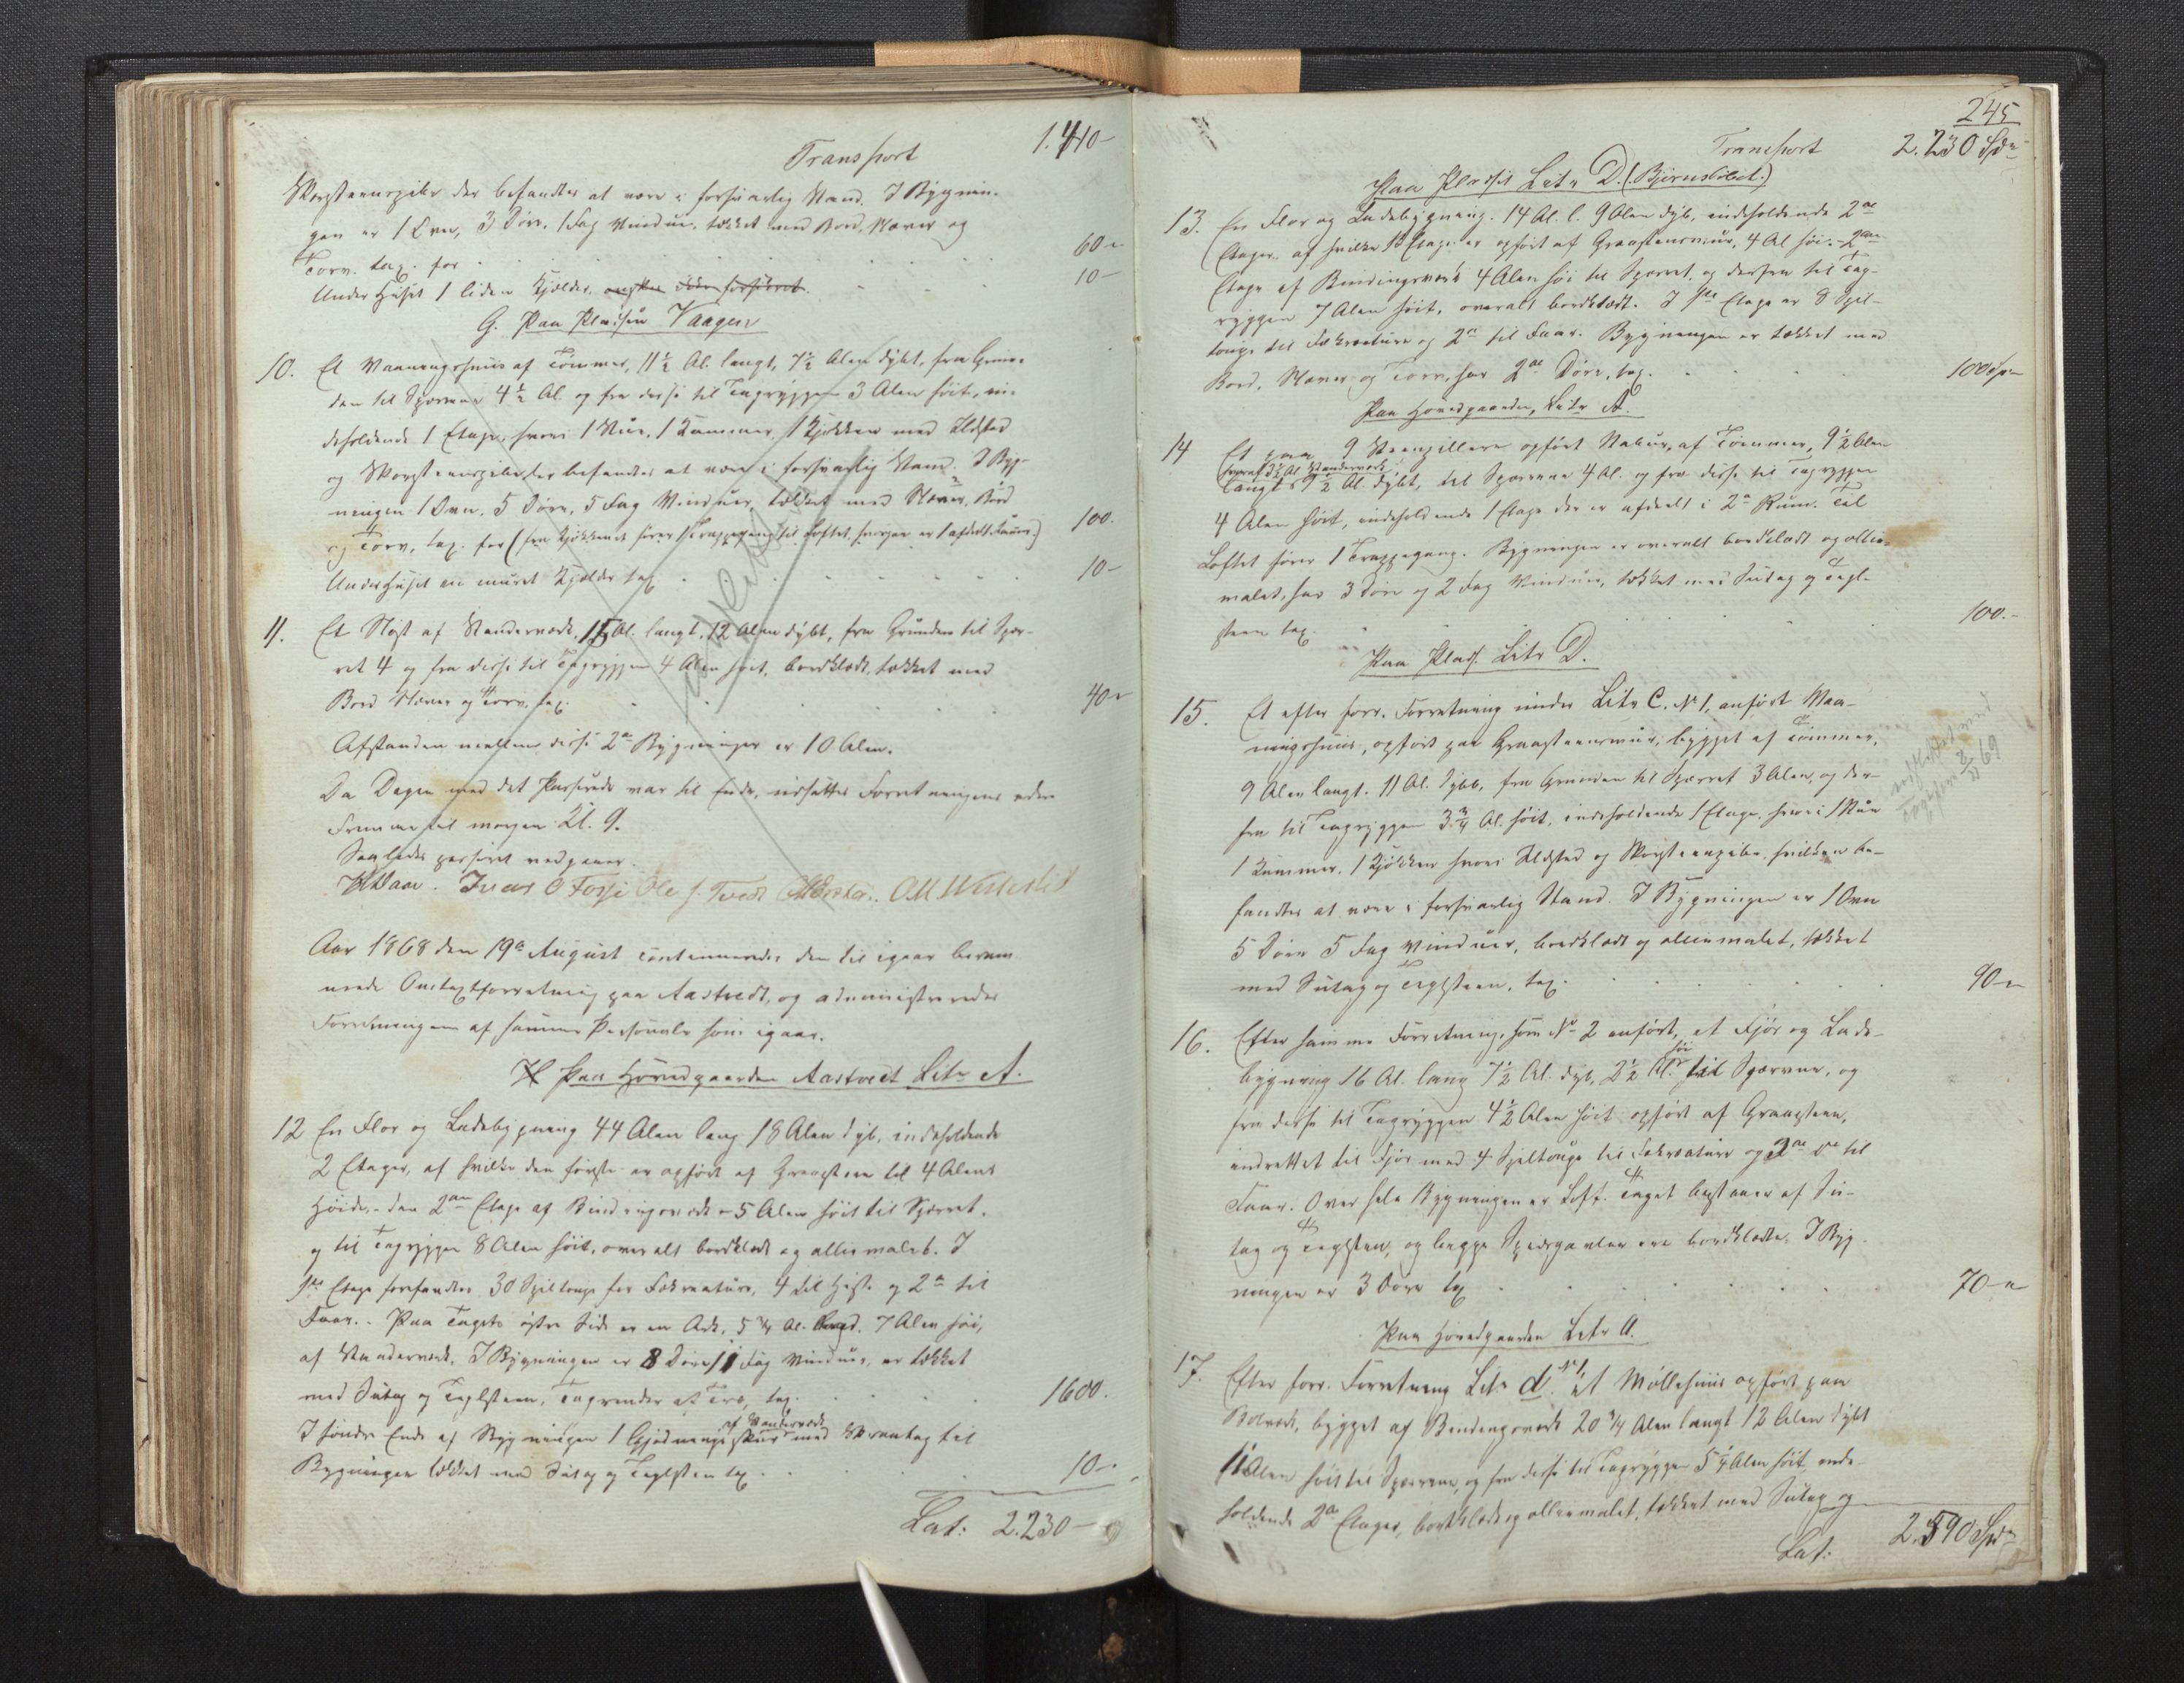 Transport 1.410-
Skorsteenspibe der befandtes at være i forsvarlig Stand. I Bygnin-
gen er 1 Ovn, 3 Døre, 1 Fag Vinduer, tækket med Bord, Næver og
Torv. tax. for 60 "
Under Huset 1 liden Kjelder 10-
G. Paa Pladsen Vaagen
10. Et Vaaningshuus af Tømmer, 11½ Al. langt, 7½ Alen dybt, fra Grun-
den til Spærrene 4½ Al. og fra disse til Tagryggen 3 Alen høit, in-
deholdende 1 Etage, hvori 1 Stue, 1 Kammer, 1 Kjøkken med Ildsted
og Skorsteenspibe der befandtes at være i forsvarlig Stand. I Byg-
ningen 1 Ovn, 5 Døre, 5 Fag Vinduer, tækket med Næver, Bord
og Torv, tax. for (fra Kjøkkenet fører 1 Trappegang til Loftet, hvorpaa er 1 afdeelt Ruum.) 100.
Under Huset en muret Kjelder tax 10-
11. Et Nøst af Standerværk, 15 Al. langt, 12 Alen dybt, fra Grunden til Spær-
ret 4 og fra disse til Tagryggen 4 Alen høit, bordklædt, tækket med
Bord Næver og Torv, tax. 40 "
Afstanden mellem disse 2de Bygninger er 10 Alen.
Da Dagen med det Passerede var til Ende, udsattes Forretningens videre
Fremme til morgen Kl. 9.
Saaledes passeret vedgaaes.
Daae. Ivar O Fosse Ole J. Tvedt O M
Aar 1868 den 19de August continueredes den til igaar beram-
mede Omtaxtforretning paa Aastvedt, og administreredes
Forretningen af samme Personale som igaar.
H Paa Hovedgaarden Aastvedt Litr A.
12 En Flor og Ladebygning 44 Alen lang 18 Alen dyb, indeholdende
2 Etager, af hvilke den første er opført af Graasteen til 4 Alens
Høide, - den 2den Etage af Bindingsværk - 5 Alen høit til Spærret,
og til Tagryggen 8 Alen høit, overalt bordklædt og olliemalet. I
1ste Etage forefandtes 30 Spiltouge for Fækreature, 4 til Heste og 2de til
Faar. - Paa Tagets østre Side er en Ark, 5¼ Al. bred, 7 Alen høi,
af Standerværk. I Bygningen er 8 Døre 11 Fag Vinduer, er tækket
med Sutag og Teglsteen, Tagrender af Træ, tax. 1600.
I søndre Ende af Bygningen 1 Gjødningsskuur af Standerværk med Skraatag til
Bygningen tækket med Sutag og Teglsteen tax 10-.
Lat: 2.230-
245
Transport 2.230 Spd
Paa Pladsen Litr D. (Bjørnslidet.)
13. En Flor og Ladebygning. 14 Al. l. 9 Alen dyb, indeholdende 2de
Etager. af hvilke 1ste Etage er opført af Graasteensmuur, 4 Al høi. - 2den
Etage af Bindingsværk 4 Alen høi til Spærret, og derfra til Tag-
ryggen 7 Alen høit, overalt bordklædt. I 1ste Etage er 8 Spil-
touge til Fækreature og 2de til Faar. Bygningen er tækket med
Bord, Næver og Torv, har 2de Døre, tax. 100 Sp
Paa Hovedgaarden, Litr A.
14 Et paa 9 Steenpillere opført Stabur, af Tømmer, 9½ Alen
hvoraf 3½ Al. Standerværk
langt 9½ Al. dybt, til Spærrene 4 Al. og fra disse til Tagryggen
4 Alen høit, indeholdende 1 Etage der er afdeelt i 2de Rum. Til
Loftet fører 1 Trappegang. Bygningen er overalt bordklædt og ollie-
malet, har 3 Døre og 2 Fag Vinduer, tækket med Sutag og Tegl-
steen tax. 100.-
Paa Plads. Litr D.
15. Et efter forr. Forretning under Litr C. No 1, anført Vaa-
ningshuus, opført paa Graasteensmuur, bygget af Tømmer,
9 Alen langt. 11 Al. dybt, fra Grunden til Spærret 3 Alen, og der-
fra til Tagryggen 3¾ Al. høit, indeholdende 1 Etage, hvori 1 Stue
1 Kammer, 1 Kjøkken hvori Ildsted og Skorsteenspibe, hvilken be-
fandtes at være i forsvarlig Stand. I Bygningen er 1 Ovn
5 Døre 5 Fag Vinduer, bordklædt og olliemalet, tækket
med Sutag og Teglsteen, tax. 90 "
16. Efter samme Forretning, som No 2 anført, et Fjøs og Lade-
bygning 16 Al. lang 7½ Al. dyb, 2½ Al. høi til Spærrene, og
fra disse til Tagryggen 4½ Alen høit opført af Graasteen,
indrettet til Fjøs med 4 Spiltouge til Fækreature og 2de do til
Faar. Over hele Bygningen er Loft. Taget bestaaer af Su-
tag og Teglsteen, og begge Spidsgavler ere bordklædte. I Byg-
ningen er 3 Døre tax 70 "
Paa Hovedgaarden Litr A.
17. Efter forr. Forretning Litr d. No 1 et Møllehuus opført paa
Bolværk, bygget af Bindingsværk 20¾ Alen langt 12 Alen dybt
11 Alen høit til Spærrene, og fra disse til Tagryggen 5¼ Alen høit inde-
holdende 2de Etager, bordklædt og olliemalet, tækket med Sutag og
Lat: 2.590 Spd